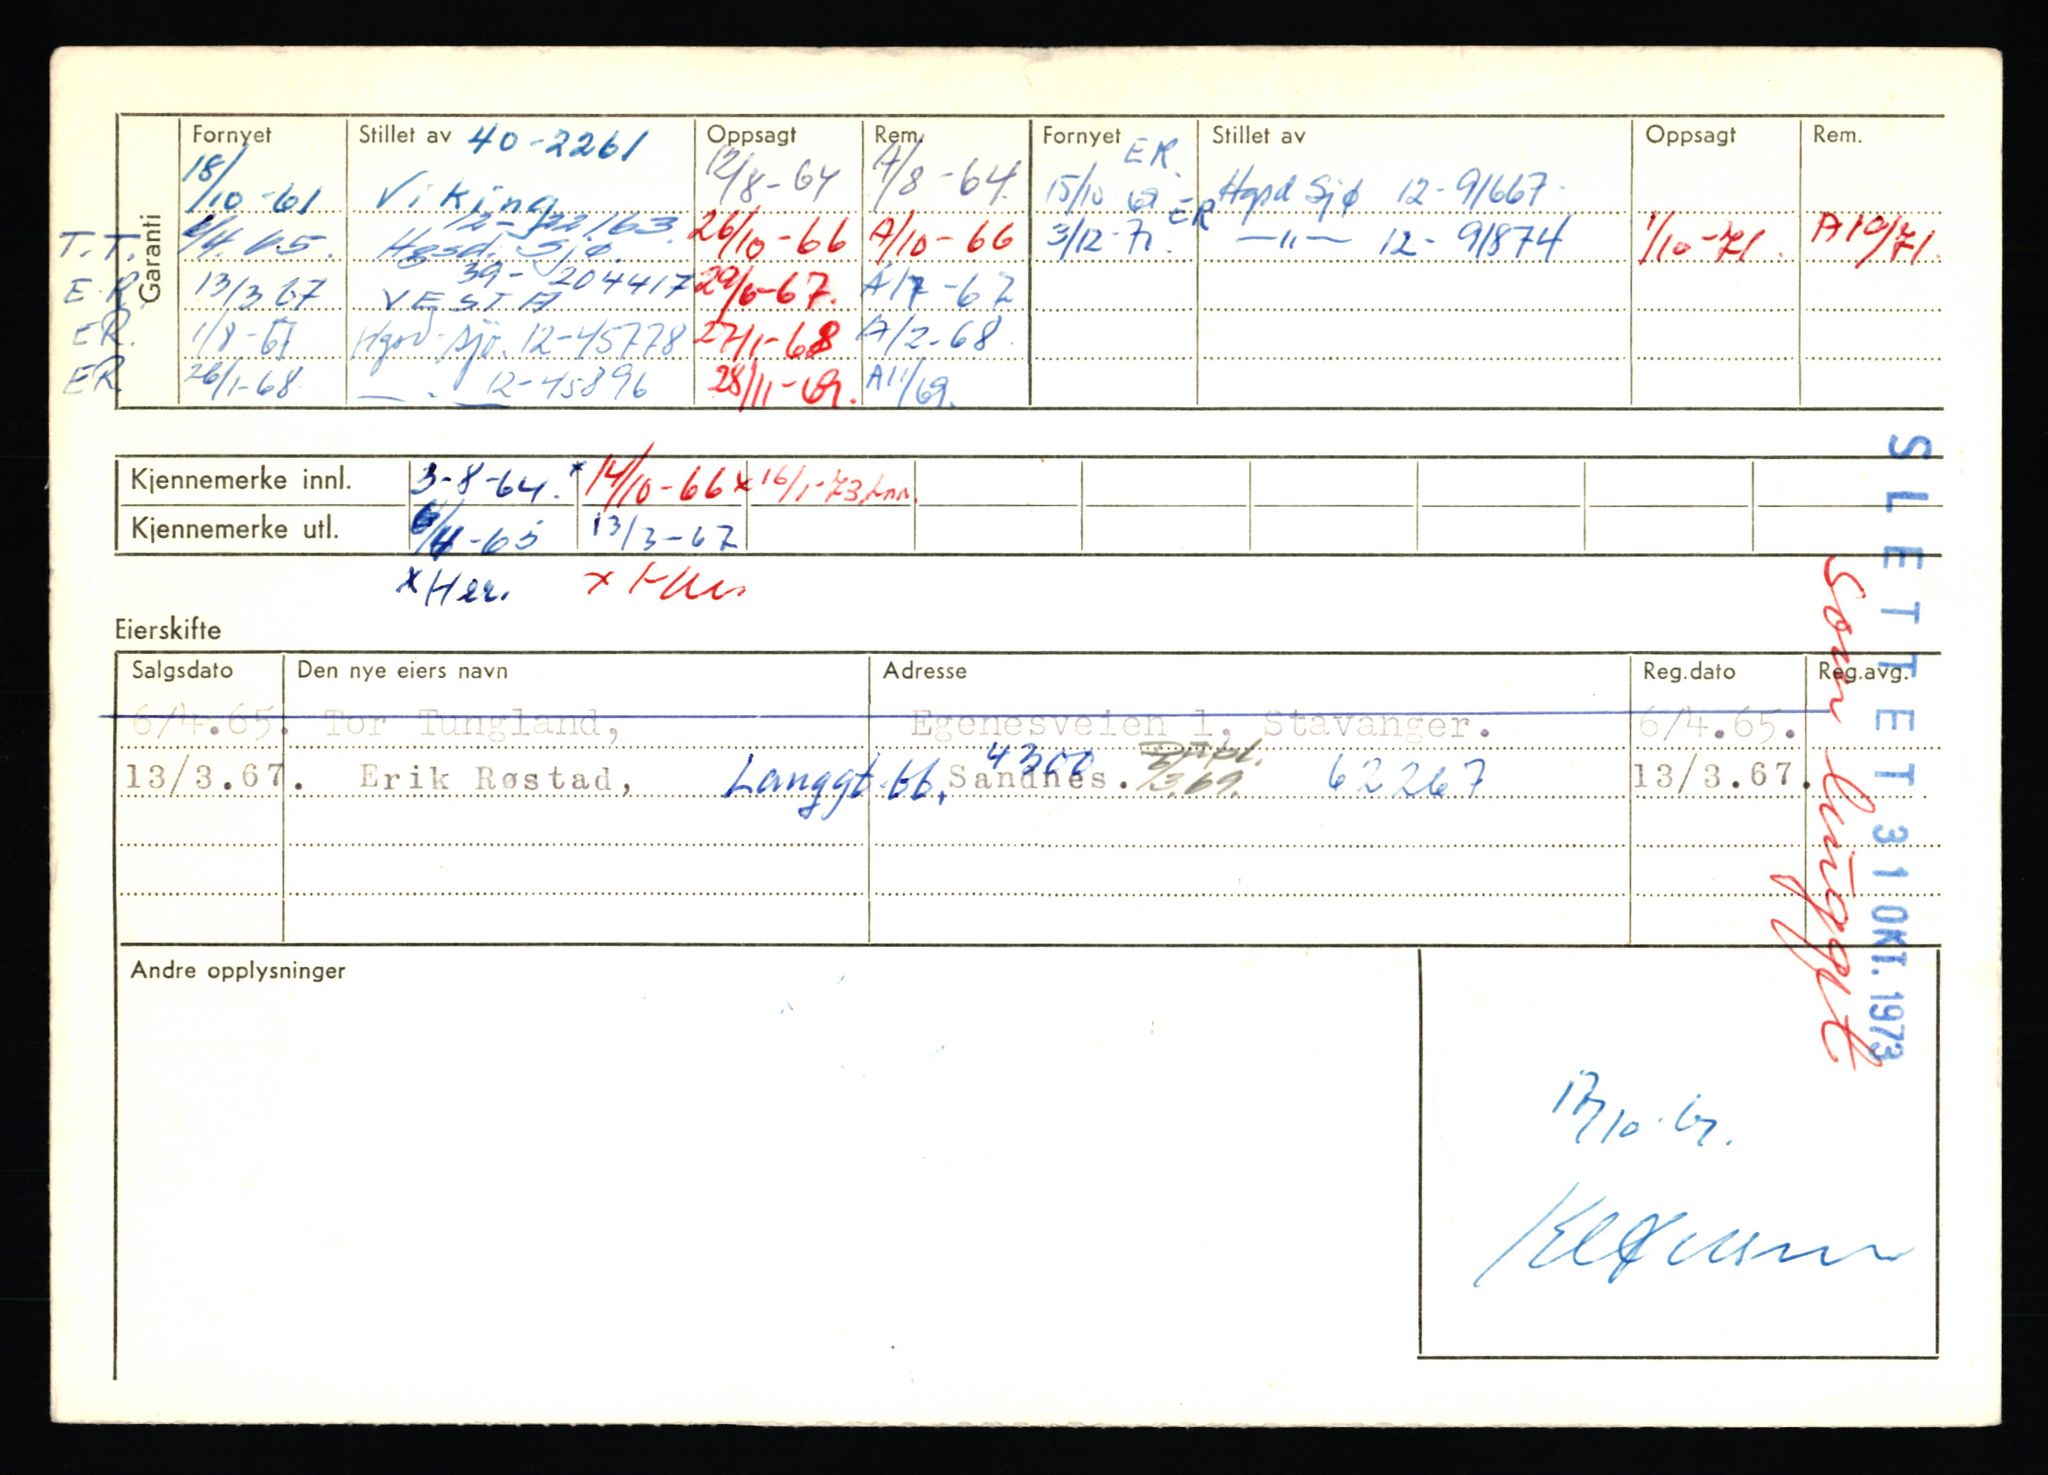 Garanti
Fornyet Stillet av 40-2261 Oppsagt Rem. Fornyet Stillet av Oppsagt Rem.
18/10-61 Viking 12/8-64 A/8-64. ER. 15/10 69 Hgsd Sjø 12-91667.
T.T. 6/4.65. Hgsd. Sjø. 12-22163. 26/10-66 A/10-66 ER 3/12-71. —"— 12-91874 1/10-71. A10/71.
E.R. 13/3 67 VESTA 39-204417 29/6-67. A/7-67
ER. 1/8-67 Hgsd. Sjø. 12-45778 27/1-68 A/2-68.
ER. 26/1-68. — . — 12-45896 28/11-69. A11/69.
Kjennemerke innl. 3-8-64.* 14/10-66x 16/1-73, Inn.
Kjennemerke utl. 6/4-65 13/3-67
x Her. x Her
Eierskifte
Salgsdato Den nye eiers navn Adresse Reg.dato Reg.avg.
6/4.65. Tor Tungland, Egenesveien 1, Stavanger. 6/4.65.
13/3.67. Erik Røstad, Langgt. 66, 4300 Sandnes. Dupl. 3/3.69. 62267 13/3.67.
Andre opplysninger
SLETTET 31 OKT. 1973
som linügget
17/10-67.